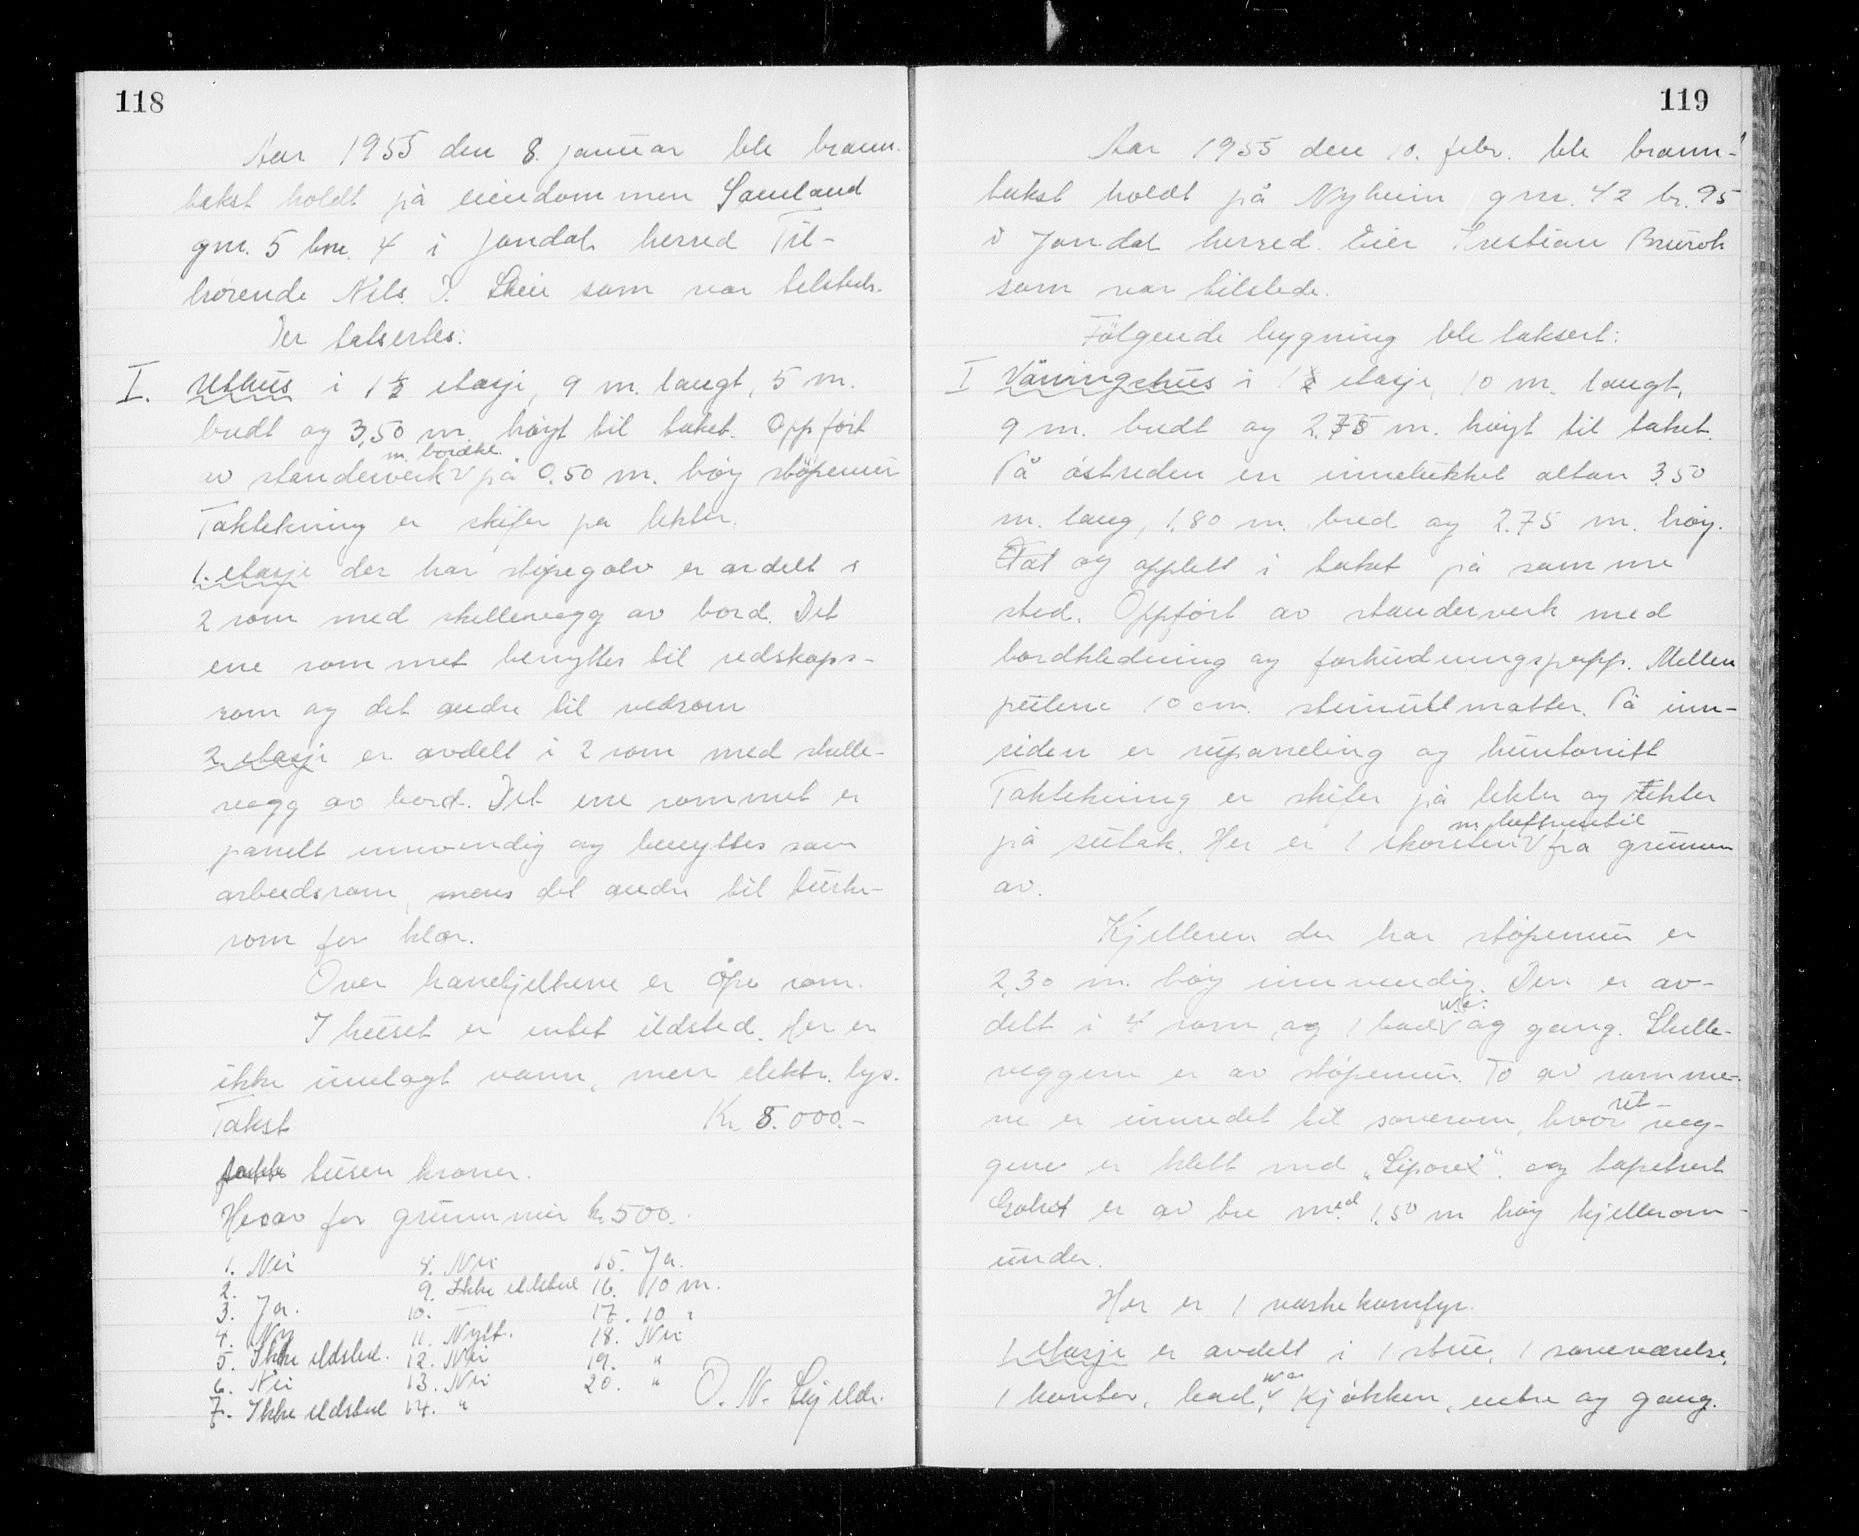 118
Aar 1955 den 8. januar ble brann-
takst holdt på eiendommen Samland
gnr. 5 bnr. 4 i Jondal herred Til-
hørende Nils J. Skeie som var tilstede.
Der takserles:
I. Uthus i 1½ etasje, 9 m. langt, 5 m.
bredt og 3,50 m høyt til taket. Oppført
m. bordkl.
av standerverk V på 0,50 m. høy støpemur
Taktekning er skifer på lekter.
1. etasje der har støpegolv er avdelt i
2 rom med skillevegg av bord. Det
ene rommet benyttes til redskaps-
rom og det andre til vedrom
2 etasje er avdelt i 2 rom med skille-
vegg av bord. Det ene rommet er
panelt innvendig og benyttes som
arbeidsrom, mens det andre til tørke-
rom for klær.
Over hanebjelkene er åpe rom.
I huset er intet ildsted. Her er
ikke innlagt vann, men elektr. lys.
Takst Kr. 8.000.-
tusen kroner.
Herav for grunnmur kr. 500.
1. Nei 8. Nei 15. Ja.
2. 9. Ikke ildsted 16. 10 m.
3. Ja. 10. — 17. 10 "
4. Ny 11. Nytt. 18. Nei
5. Ikke ildsted. 12. Nei 19. "
6. Nei 13. Nei 20. "
7. Ikke ildsted 14. "
O. N. Skjeldr.
119
Aar 1955 den 10. febr. ble brann-
takst holdt på Nyheim gnr. 42 br. 95
i Jondal herred. Eier Kristian Bruvik
som var tilstede.
Følgende bygning ble taksert:
I Våningshus i 1 etasje, 10 m. langt,
9 m. bredt og 2.75 m. høyt til taket.
På østsiden en innelukket altan 3,50
m. lang, 1,80 m. bred og 2.75 m. høy.
og opplett i taket på samme
sted. Oppført av standerverk med
bordkledning og forhudningspapp. Mellem
peilene 10 cm. steinullmatter. På inn-
siden er rupaneling og huntonitt
Taktekning er skifer på lekter og lekter
m. luftventil
på sutak. Her er 1 skorstein V fra grunnen
av.
Kjelleren der har støpemur er
2,30 m. høy innvendig. Den er av-
w.c.
delt i 4 rom og 1 bad V og gang. Skille-
veggene er av støpemur. To av romme-
ut-
ne er innredet til soverom, hvor veg-
gene er kledt med „Siporex". og tapetsert
Golvet er av tre med 1,50 m høy kjellerom
under.
Her er 1 vaskekomfyr.
1 etasje er avdelt i 1 stue, 1 soveværelse,
w.c.
1 kontor, bad, V Kjøkken, entre og gang.